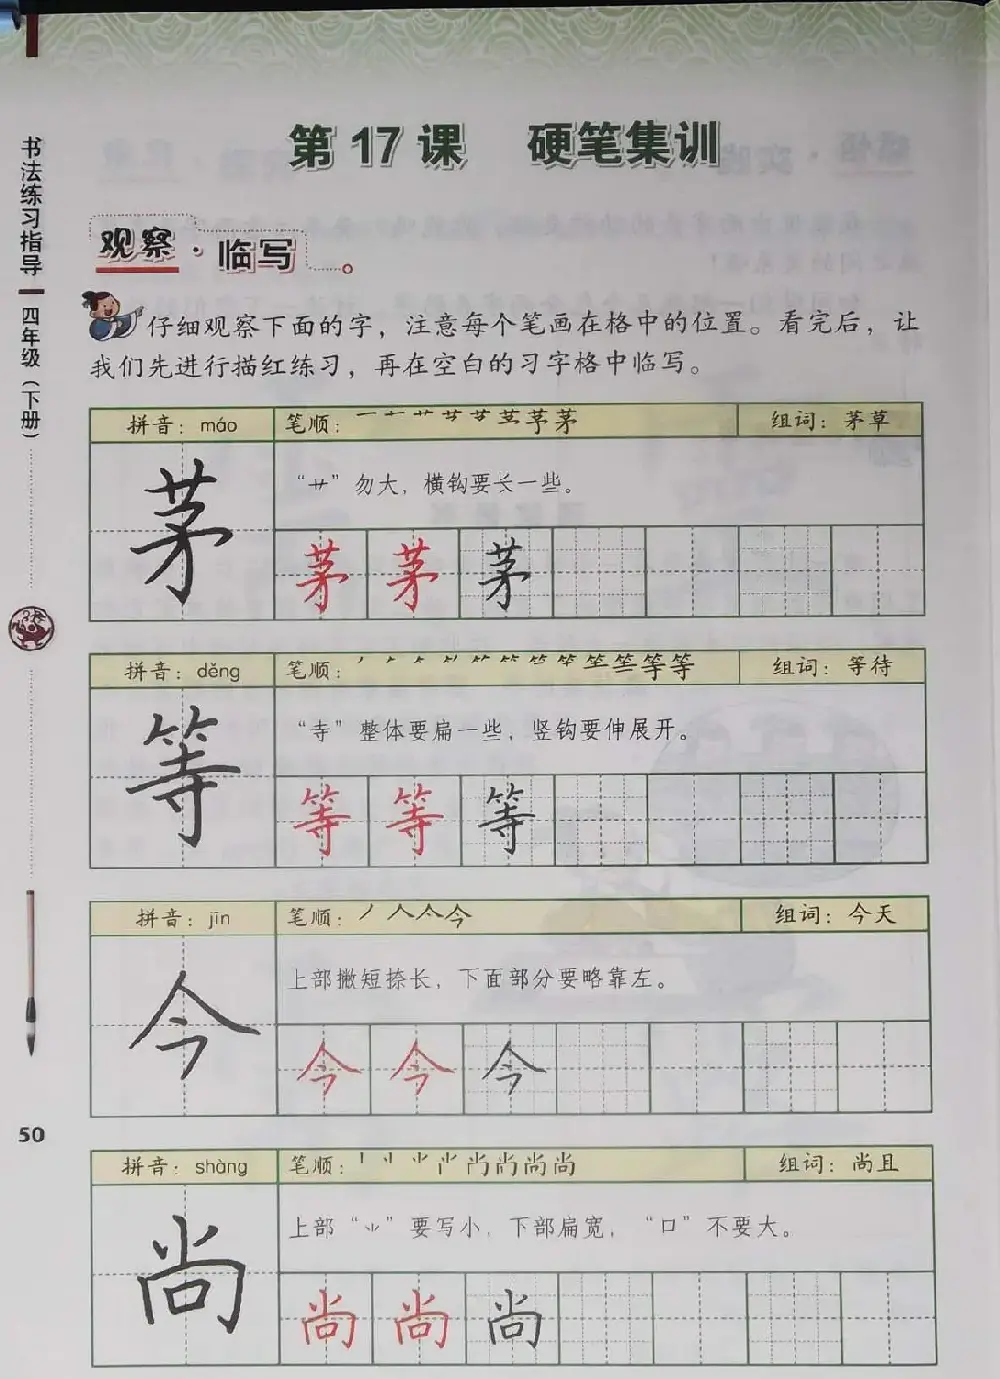 书法练习指导 四年级（下册）
第 17 课 硬笔集训
观察·临写
仔细观察下面的字，注意每个笔画在格中的位置。看完后，让
我们先进行描红练习，再在空白的习字格中临写。
拼音：máo 笔顺： 组词：茅草
茅
“艹”勿大，横钩要长一些。
茅 茅 茅
拼音：děng 笔顺： 组词：等待
等
“寺”整体要扁一些，竖钩要伸展开。
等 等 等
拼音：jīn 笔顺： 组词：今天
今
上部撇短捺长，下面部分要略靠左。
今 今 今
50
拼音：shàng 笔顺： 组词：尚且
尚
上部“⺌”要写小，下部扁宽，“口”不要大。
尚 尚 尚